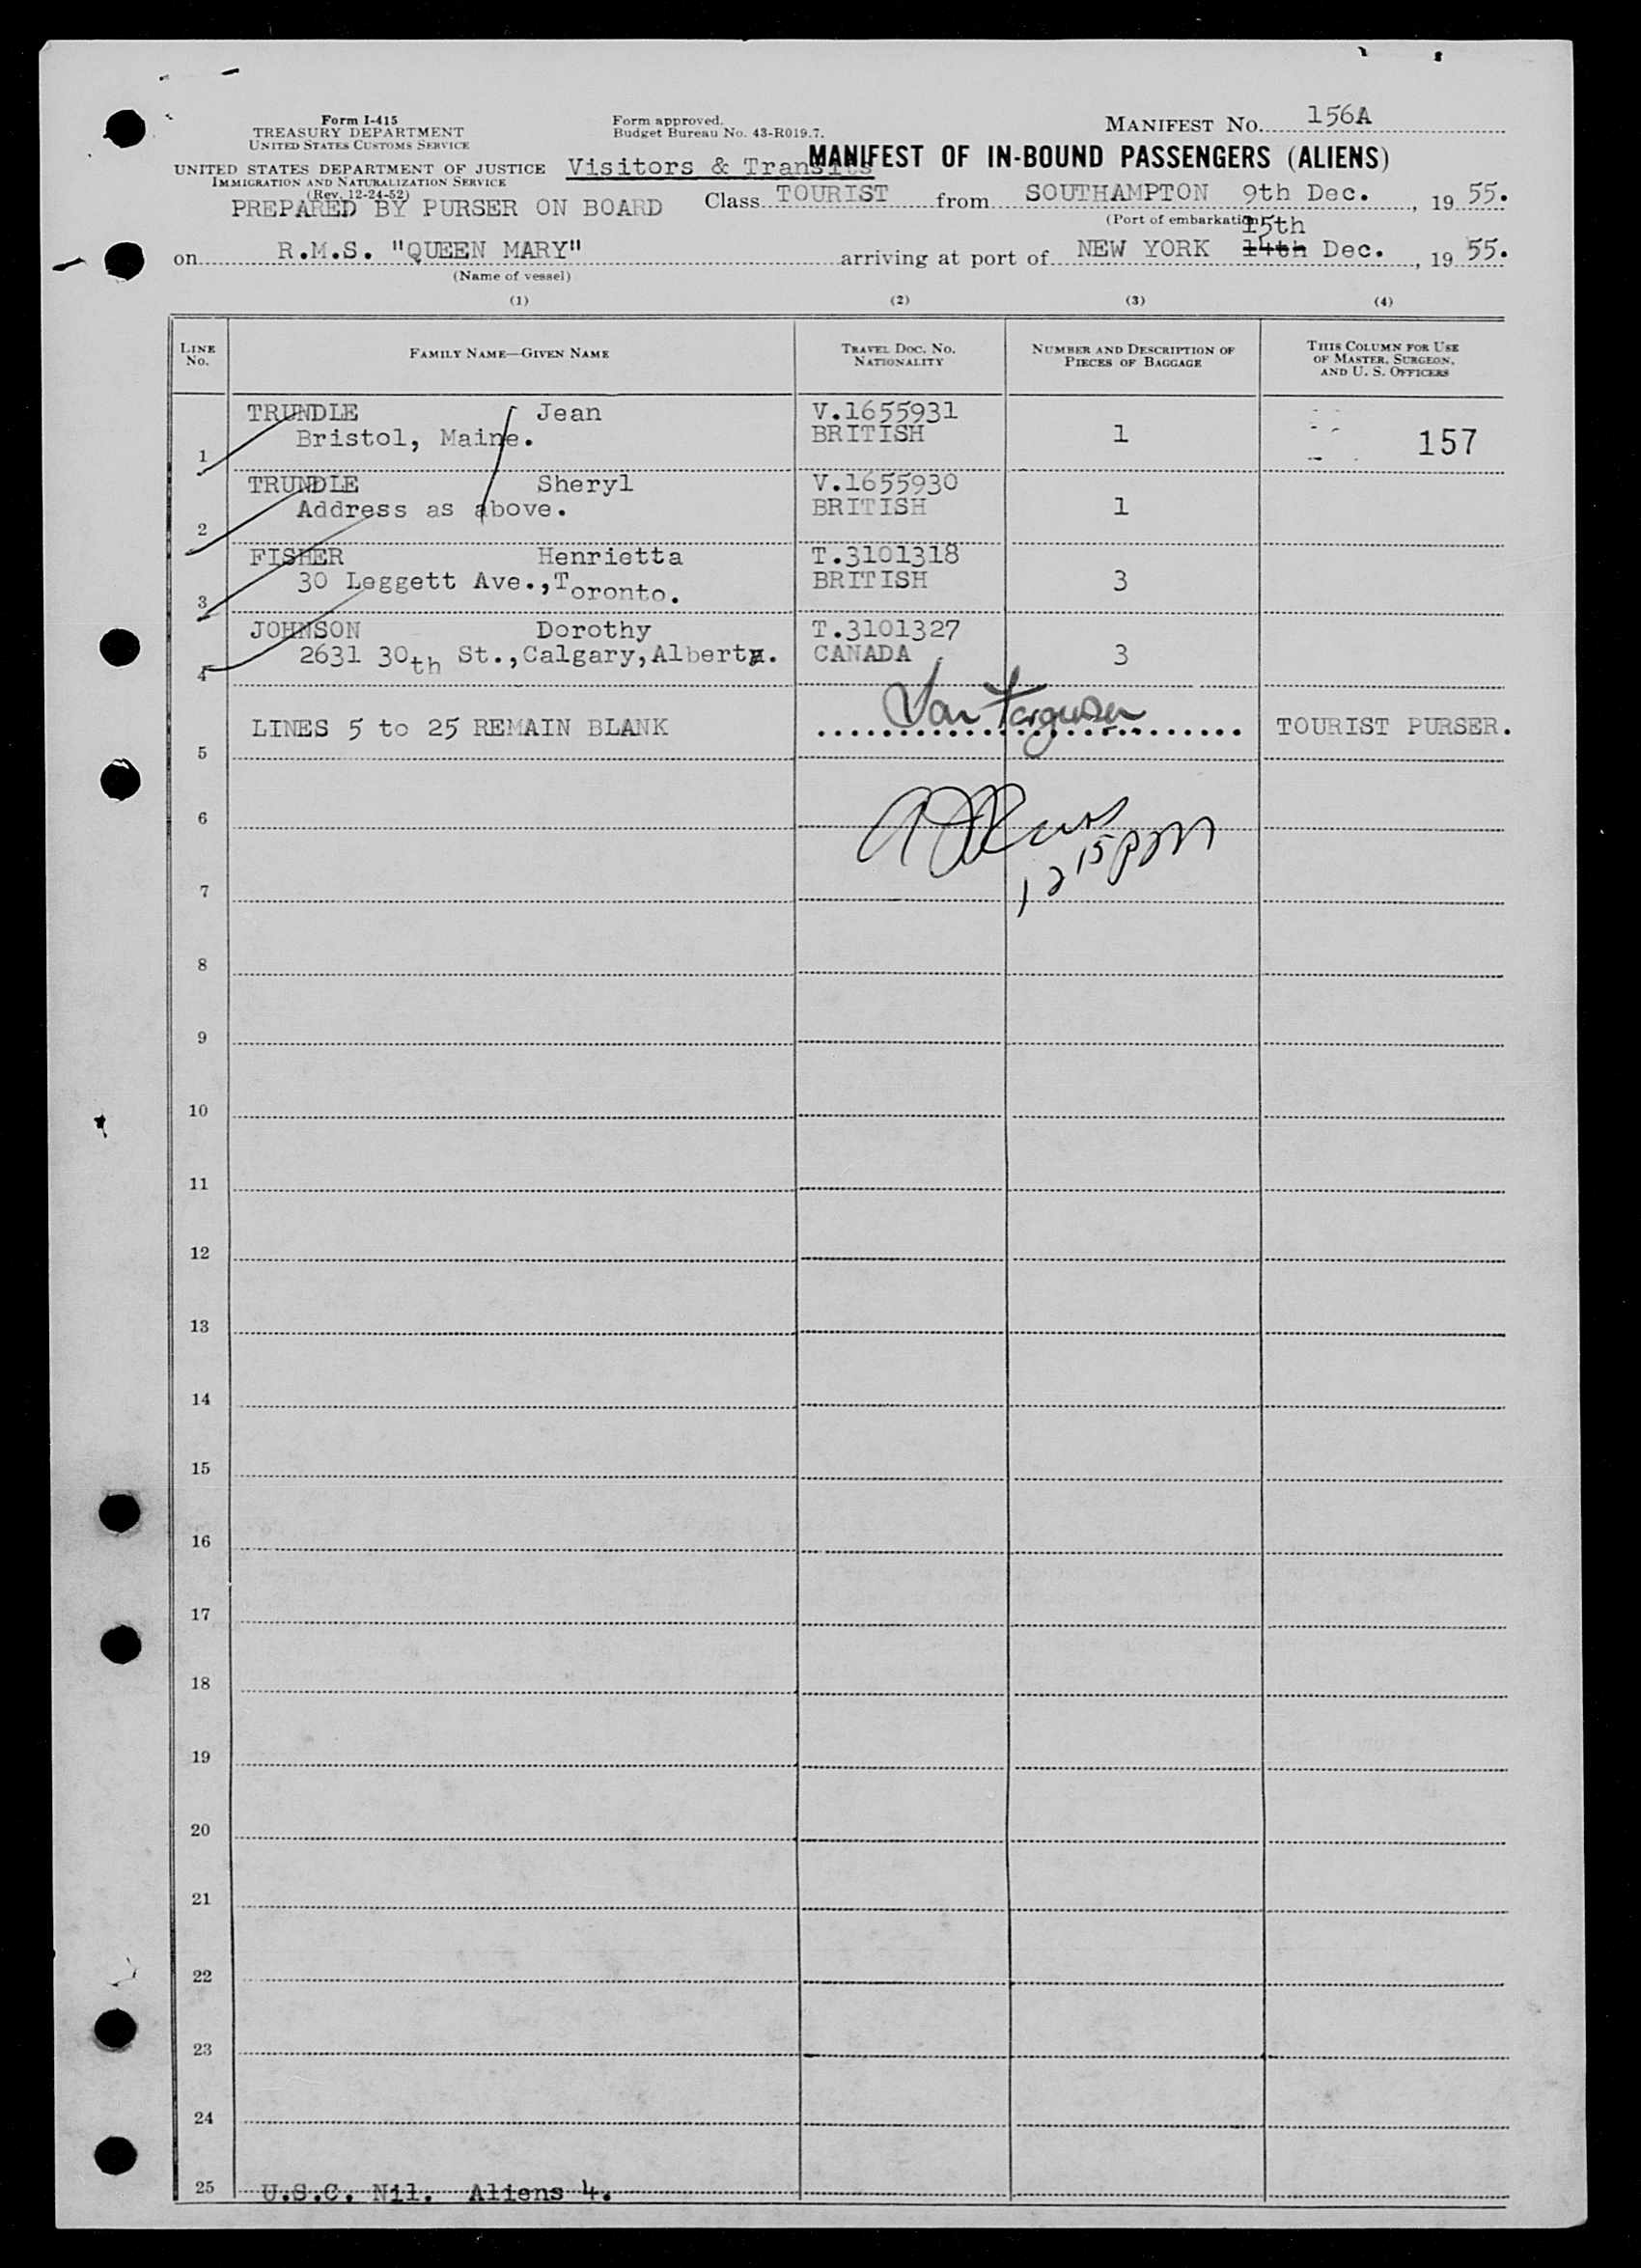 Form I-415
TREASURY DEPARTMENT
UNITED STATES CUSTOMS SERVICE
Form approved.
Budget Bureau No. 43-R019.7.
MANIFEST No. 156A
UNITED STATES DEPARTMENT OF JUSTICE
IMMIGRATION AND NATURALIZATION SERVICE
(Rev. 12-24-52)
Visitors & Transits
MANIFEST OF IN-BOUND PASSENGERS (ALIENS)
PREPARED BY PURSER ON BOARD
Class TOURIST from SOUTHAMPTON 9th Dec. , 19 55.
(Port of embarkation)
15th
on R.M.S. "QUEEN MARY" arriving at port of NEW YORK 14th Dec. , 19 55.
(Name of vessel)
(1) (2) (3) (4)
LINE No.
FAMILY NAME—GIVEN NAME
TRAVEL DOC. No. NATIONALITY
NUMBER AND DESCRIPTION OF PIECES OF BAGGAGE
THIS COLUMN FOR USE OF MASTER, SURGEON, AND U. S. OFFICERS
TRUNDLE Jean V.1655931
1 Bristol, Maine. BRITISH 1 157
TRUNDLE Sheryl V.1655930
2 Address as above. BRITISH 1
FISHER Henrietta T.3101318
3 30 Leggett Ave.,Toronto. BRITISH 3
JOHNSON Dorothy T.3101327
4 2631 30th St.,Calgary,Alberta. CANADA 3
5 LINES 5 to 25 REMAIN BLANK Ferguson TOURIST PURSER.
6
1215pm
7
8
9
10
11
12
13
14
15
16
17
18
19
20
21
22
23
24
25 U.S.C. Nil. Aliens 4.